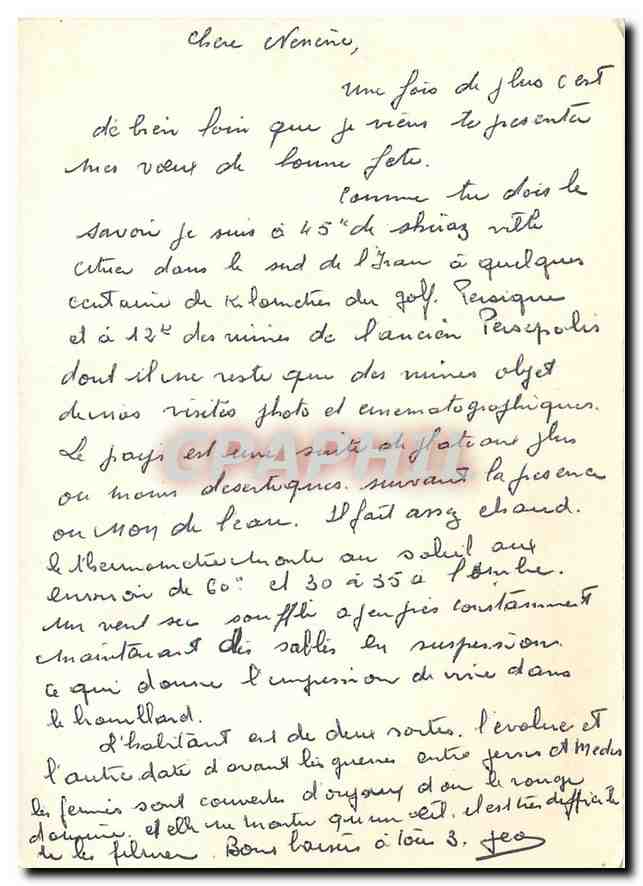 Chere Nenene,
une fois de plus c'est
de bien loin que je viens te presenter
mes vœux de bonne fete.
Comme tu dois le
savoir je suis à 45 k de shiraz ville
située dans le sud de l'Iran à quelques
centaine de Kilometres du golf. Persique
et à 12 k des ruines de l'ancien Persepolis
dont il ne reste que des ruines objet
de nos visites photo et cinematographiques.
Le pays est une suite de plateaux plus
CPAPHIL
ou moins desertiques suivant la presence
ou non de l'eau. Il fait assez chaud.
le thermometre monte au soleil aux
environ de 60° et 30 à 35 à l'ombre.
un vent sec souffle a peu pres constamment
maintenant des sables en suspension
ce qui donne l'impression de vivre dans
le brouillard.
L'habitant est de deux sortes. l'évolué et
l'autre date d'avant les guerres entre perses et Medes
les femmes sont couvertes d'oripeaux dont le rouge
domine. et elle ne montre qu'un œil. il est très difficile
de les filmer. Bons baisers à tous 3. Jea